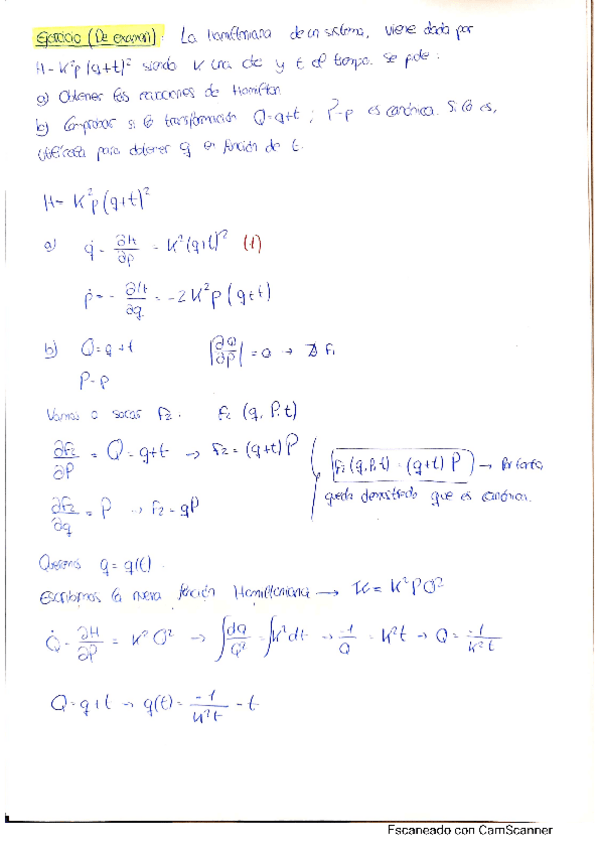 Ejercicio (De examen): La Hamiltoniana de un sistema, viene dada por
H = K²p (q+t)² siendo K una cte y t el tiempo. Se pide:
a) Obtener las ecuaciones de Hamilton
b) Comprobar si la transformación Q=q+t ; P=p es canónica. Si lo es,
utilízala para obtener q en función de t.
H = K²p(q+t)²
a) q̇ = ∂H/∂p = K²(q+t)² (1)
ṗ = - ∂H/∂q = -2K²p(q+t)
b) Q = q+t |∂Q/∂p| = 0 → ∄ F₁
P = p
Vamos a sacar F₂. F₂ (q, P, t)
∂F₂/∂P = Q = q+t → F₂ = (q+t)P
F₂(q,P,t) = (q+t) P → Por tanto
queda demostrado que es canónica.
∂F₂/∂q = P → F₂ = qP
Queremos q = q(t).
Escribimos la nueva función Hamiltoniana → K = K²PQ²
Q̇ = ∂H/∂P = K²Q² → ∫dQ/Q² = ∫K²dt → -1/Q = K²t → Q = -1/K²t
Q = q+t → q(t) = -1/K²t - t
Escaneado con CamScanner